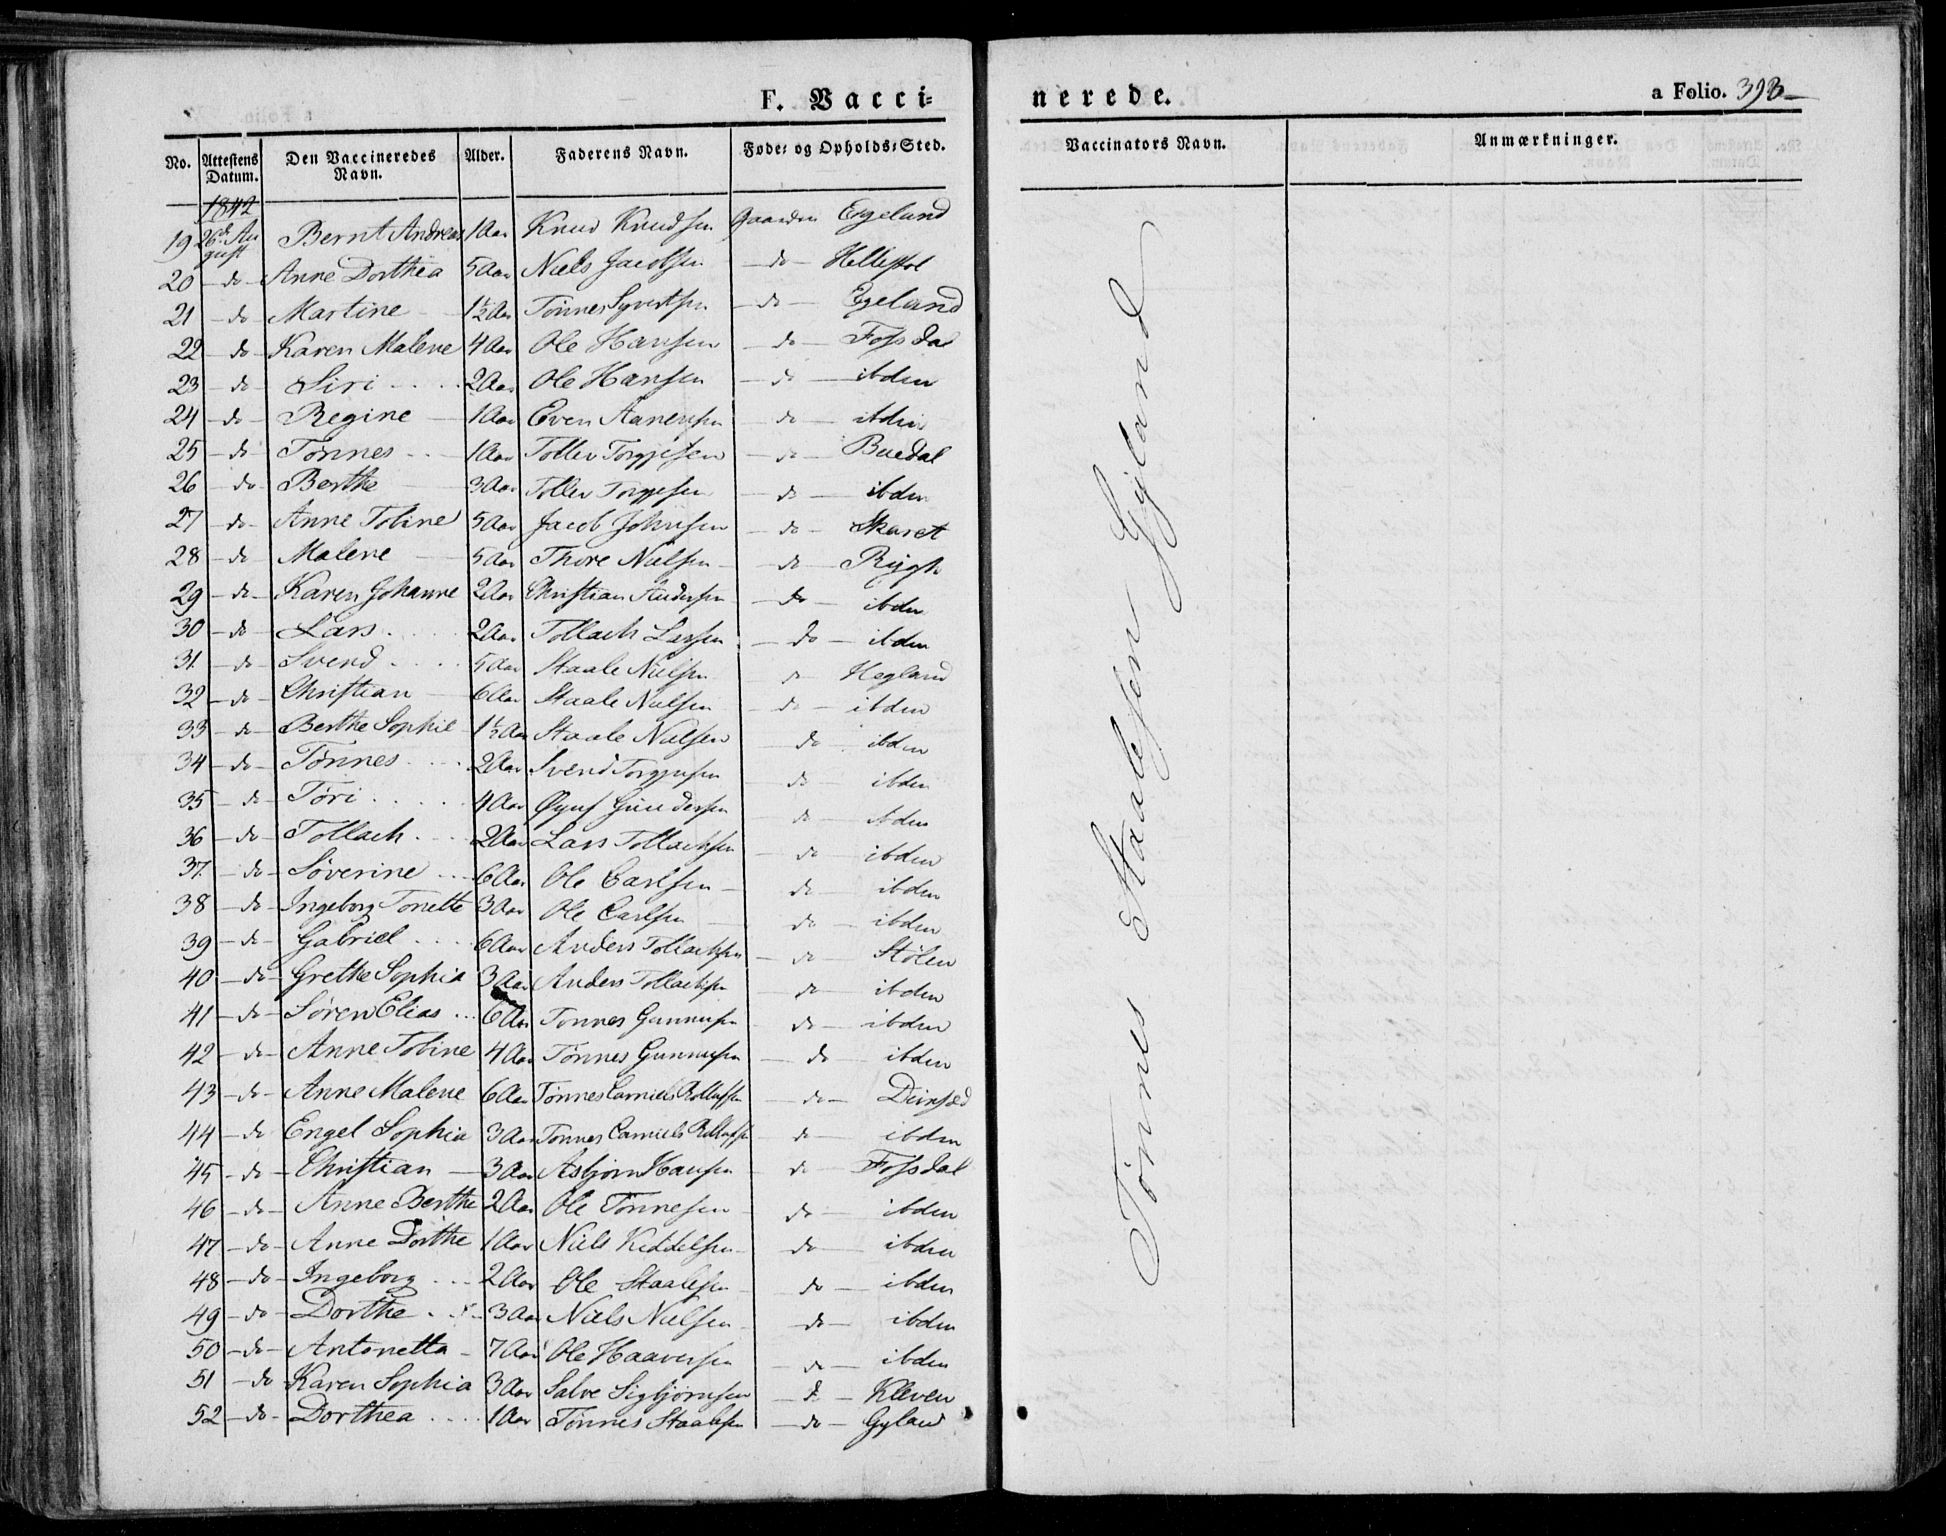 F. Vacci=
nerede.
a Folio. 393
No. Attestens Datum. Den Vaccineredes Navn. Alder. Faderens Navn. Føde= og Opholds=Sted.
Vaccinators Navn. Anmærkninger.
1842
19 26de August Bernt Andreas 1 Aar Knud Knudsen Gaarden Egeland
20 do Anne Dorthea 5 Aar Niels Jacobsen do Hellestøl
21 do Martine 1½ Aar Tønnes Syvertsen do Egeland
22 do Karen Malene 4 Aar Ole Hansen do Fossdal
23 do Siri 2 Aar Ole Hansen do ibden
24 do Regine 1 Aar Even Aanensen do ibden
25 do Tønnes 1 Aar Tollev Torgjesen do Buedal
26 do Berthe 3 Aar Tollev Torgjesen do ibden
27 do Anne Tobine 5 Aar Jacob Johnsen do Skaret
28 do Malene 5 Aar Thore Nielsen do Rügh
29 do Karen Johanne 2 Aar Christian Andersen do ibden
30 do Lars 2 Aar Tollach Larsen do ibden
31 do Svend 5 Aar Staale Nielsen do Hegland
32 do Christian 6 Aar Staale Nielsen do ibden
33 do Berthe Sophie 1½ Aar Staale Nielsen do ibden
34 do Tønnes 2 Aar Svend Torgjusen do ibden
35 do Tøri 4 Aar Øyuf Gundersen do ibden
36 do Tollach 2 Aar Lars Tollachsen do ibden
37 do Søverine 6 Aar Ole Carlsen do ibden
38 do Ingeborg Tonette 3 Aar Ole Carlsen do ibden
39 do Gabriel 6 Aar Anders Tollachsen do Stølen
40 do Grethe Sophia 3 Aar Anders Tollachsen do ibden
41 do Søren Elias 6 Aar Tønnes Gunnusen do ibden
42 do Anne Tobine 4 Aar Tønnes Gunnusen do ibden
43 do Anne Malene 6 Aar Tønnes Corniels Rollufsen do
44 do Engel Sophia 3 Aar Tønnes Corniels Rollufsen do ibden
45 do Christian 3 Aar Asbjørn Hansen do Fossdal
46 do Anne Berthe 2 Aar Ole Tønnesen do ibden
47 do Anne Dorthe 1 Aar Niels Keddelsen do ibden
48 do Ingeborg 2 Aar Ole Staalesen do ibden
49 do Dorthe 3 Aar Niels Nielsen do ibden
50 do Antonetta 7 Aar Ole Haaversen do ibden
51 do Karen Sophia 3 Aar Salve Sigbjørnsen do Kleven
52 do Dorthea 1 Aar Tønnes Staalesen do Gyland
Tønnes Staalesen Gyland